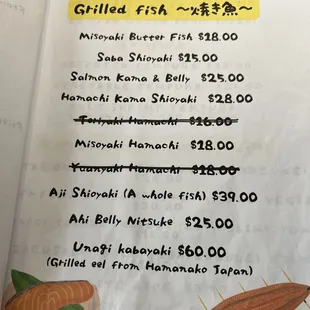 Grilled fish ～焼き魚～
Misoyaki Butter Fish $28.00
Saba Shioyaki $25.00
Salmon Kama & Belly $25.00
Hamachi Kama Shioyaki $28.00
Teriyaki Hamachi $16.00
Misoyaki Hamachi $18.00
Yuanyaki Hamachi $18.00
Aji Shioyaki (A whole fish) $39.00
Ahi Belly Nitsuke $25.00
Unagi kabayaki $60.00
(Grilled eel from Hamanako Japan)